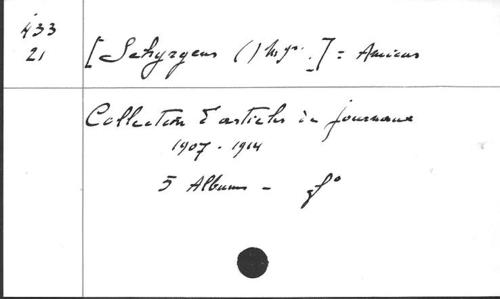 i 433
21
[Schyrgens () Mgr.] = Amicus
Collection d'articles in journaux
1907 - 1914
5 Albums - gf°